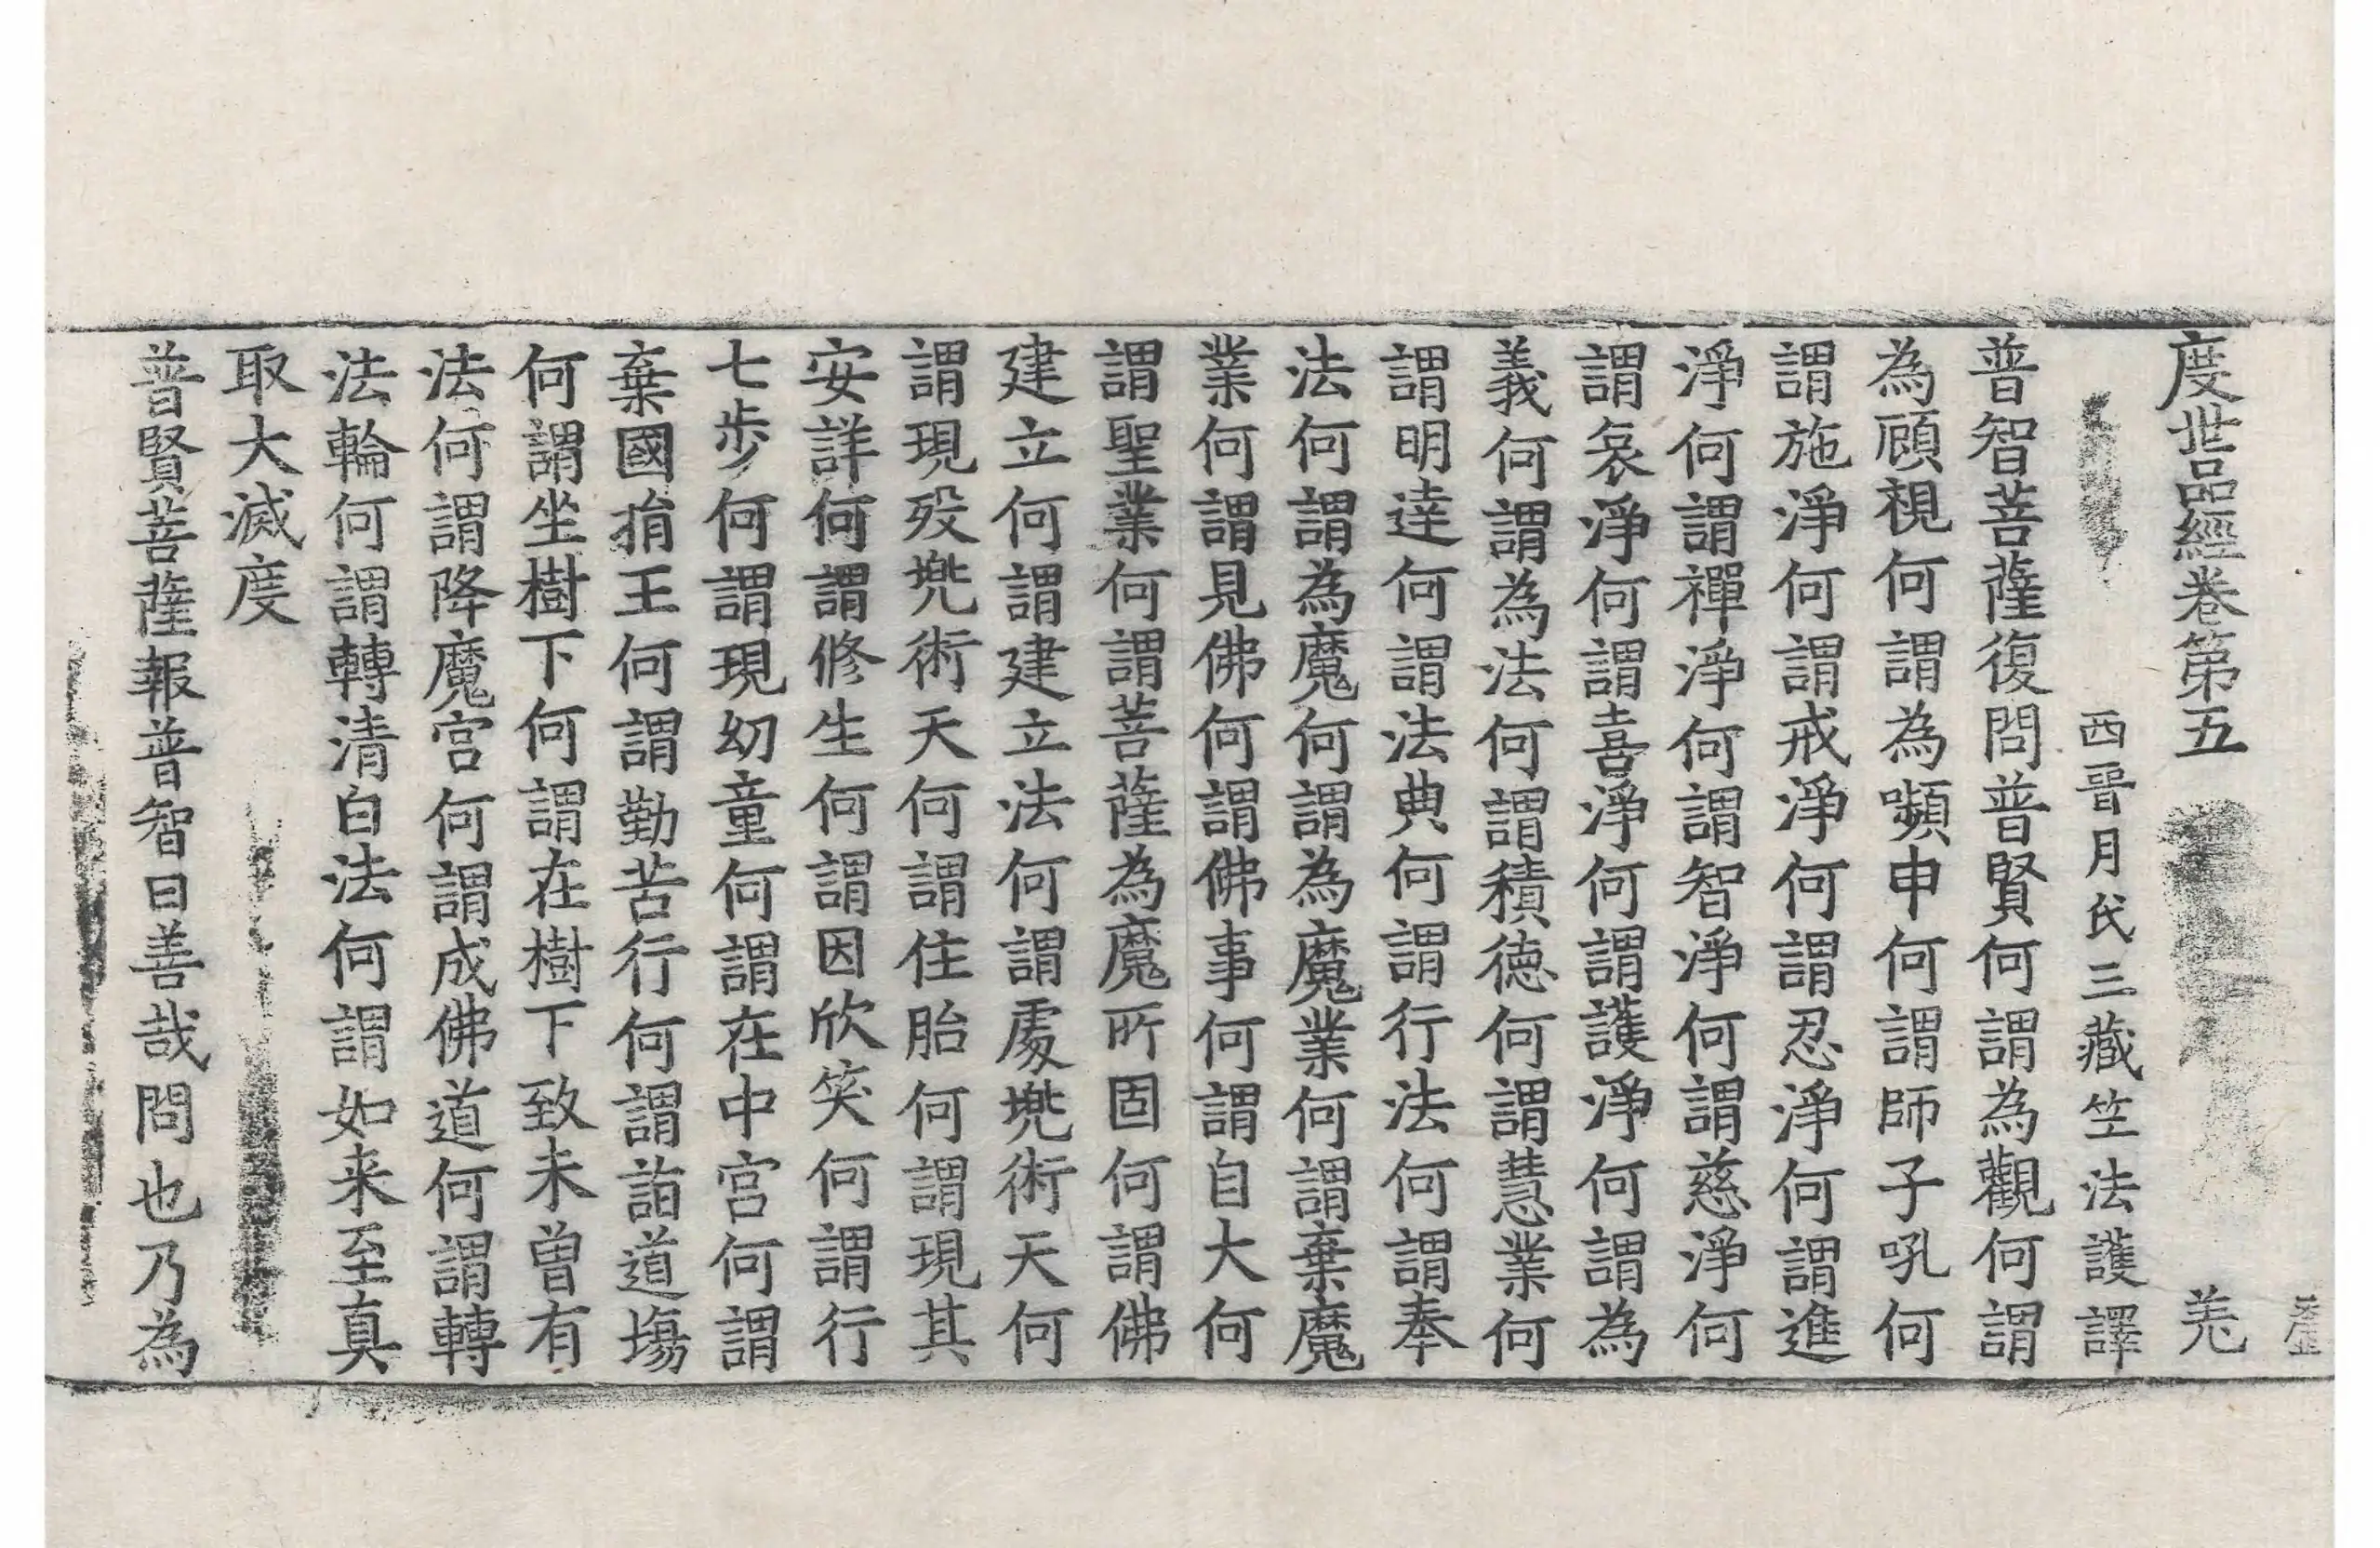 度世品經卷第五 羌
西晉月氏三藏竺法護譯
普智菩薩復問普賢何謂為觀何謂
為顧視何謂為嚬申何謂師子吼何
謂施淨何謂戒淨何謂忍淨何謂進
淨何謂禪淨何謂智淨何謂慈淨何
謂哀淨何謂喜淨何謂護淨何謂為
義何謂為法何謂積德何謂慧業何
謂明達何謂法典何謂行法何謂奉
法何謂為魔何謂為魔業何謂棄魔
業何謂見佛何謂佛事何謂自大何
謂聖業何謂菩薩為魔所固何謂佛
建立何謂建立法何謂處兠術天何
謂現歿兠術天何謂住胎何謂現其
安詳何謂修生何謂因欣笑何謂行
七步何謂現幼童何謂在中宮何謂
棄國捐王何謂勤苦行何謂詣道場
何謂坐樹下何謂在樹下致未曾有
法何謂降魔宮何謂成佛道何謂轉
法輪何謂轉清白法何謂如来至真
取大滅度
普賢菩薩報普智曰善哉問也乃為